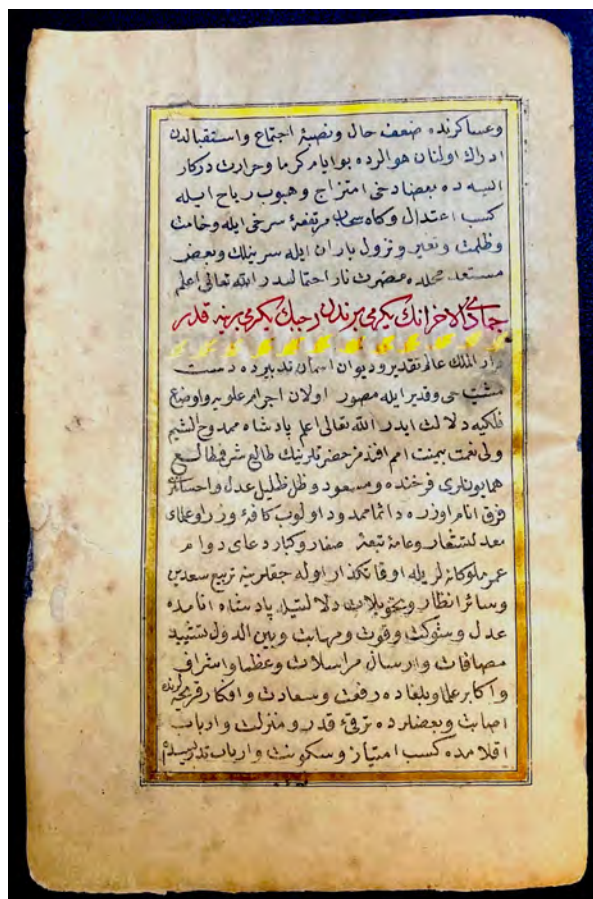 وعساكرنده ضعف حال ونصبهٔ اجتماع واستقبالدن
ادراك اولنان هوالرده بو ايام كرما وحرارت دركار
ايسه ده بعضا دخى امتزاج وهبوب رياح ايله
كسب اعتدال وكاه سحاب مرتفعهٔ سرخى ايله وخامت
وظلمت وتغير ونزول باران ايله سرينلك وبعض
مستعد محلده مضرت نار احتاليدر الله تعالى اعلم
جمادى الاخرانك يكرمى برندن رجبك يكرمى برينه قدر
دار الملك عالم تقدير وديوان تدبيرده دست
مشيت حى وقدير ايله مصور اولان اجرام علويه واوضاع
فلكيه دلالت ايدر الله تعالى اعلم پادشاه ممدوح الشيم
ولى نعمت بيمنت امم افندمز حضرتلرينك طالع شرفطالع
همايونلرى فرخنده ومسعود وظل ظليل عدل واحسانلرى
فرق انام اوزره دائما ممدود اولوب كافهٔ وزراء وعلماى
معدلتشعار وعامهٔ تبعهٔ صغار وكبار دعاى دوام
عمر ملوكانه لريله اوقاتكذار اوله جقلرينه تربيع سعدين
وسائر انظار وتحويلات دلالتيله پادشاه انامده
عدل وشوكت وقوت ومهابت وبين الدول تشييد
مصافات وارسال مراسلات وعظما واشراف
واكابر علما وبلغاده رفعت وسعادت وافكار قريحه لرنده
اصابت وبعضلرده ترفىء قدر ومنزلت وارباب
اقلامده كسب امتياز وسكونت وارباب